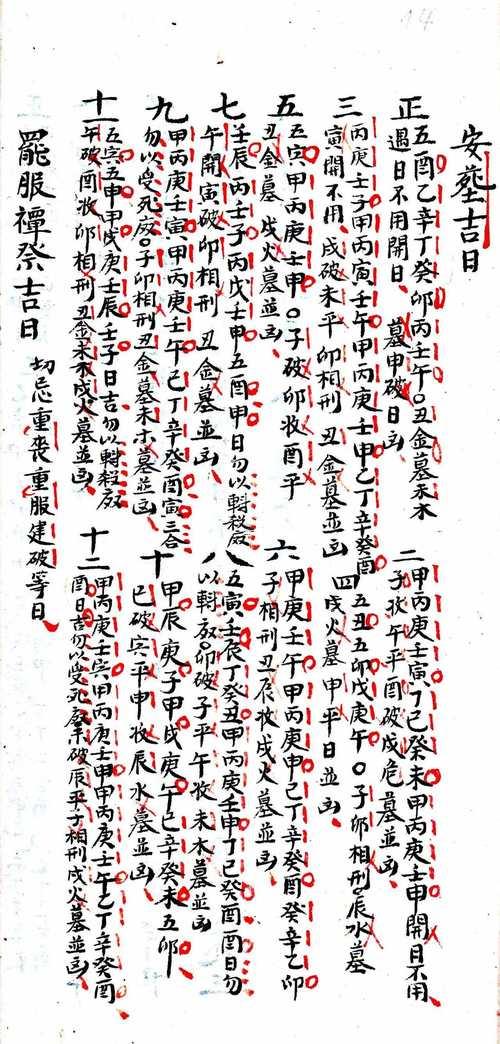 14
安塟吉日
正 五酉乙辛丁癸卯丙壬午〇丑金墓未木
遇日不用開日、墓申破日凶、
二 甲丙庚壬寅、丁己癸未甲丙庚壬申開日不用
子收午平酉破戍危墓並凶、
三 丙庚壬子甲丙寅壬午甲丙庚壬申乙丁辛癸酉
寅開不用、戍破未平卯相刑丑金墓並凶
四 五丑五卯戊庚午〇子卯相刑辰水墓
戍火墓申平日並凶、
五 五寅甲丙庚壬申〇子破卯收酉平
丑金墓戍火墓並凶、
六 甲庚壬午甲丙庚申己丁辛癸酉癸辛乙卯
子相刑丑辰收戍火墓並凶、
七 壬辰丙壬子丙戊壬申五酉申日勿以斢殺廒
午開寅破卯相刑丑金墓並凶、
八 五寅壬辰丁癸丑甲丙庚壬申丁己癸酉酉日勿
以斢廒卯破子平午收未木墓並凶
九 甲丙庚壬寅、甲丙庚壬午己丁辛癸酉寅三合
勿以受死廒〇子卯相刑丑金墓未木墓並凶、
十 甲辰庚子甲戍庚午己辛癸未五卯
巳破寅平申收辰水墓並凶
十一 五寅五申甲戍庚壬辰壬子日吉勿以斢殺廒
午破酉收卯相刑丑金未木戍火墓並凶、
十二 甲丙庚壬寅甲丙庚壬申甲丙庚壬午乙丁辛癸酉
酉日吉勿以受死廒未破辰平子相刑戍火墓並凶、
罷服禫祭吉日 切忌重喪重服建破等日、